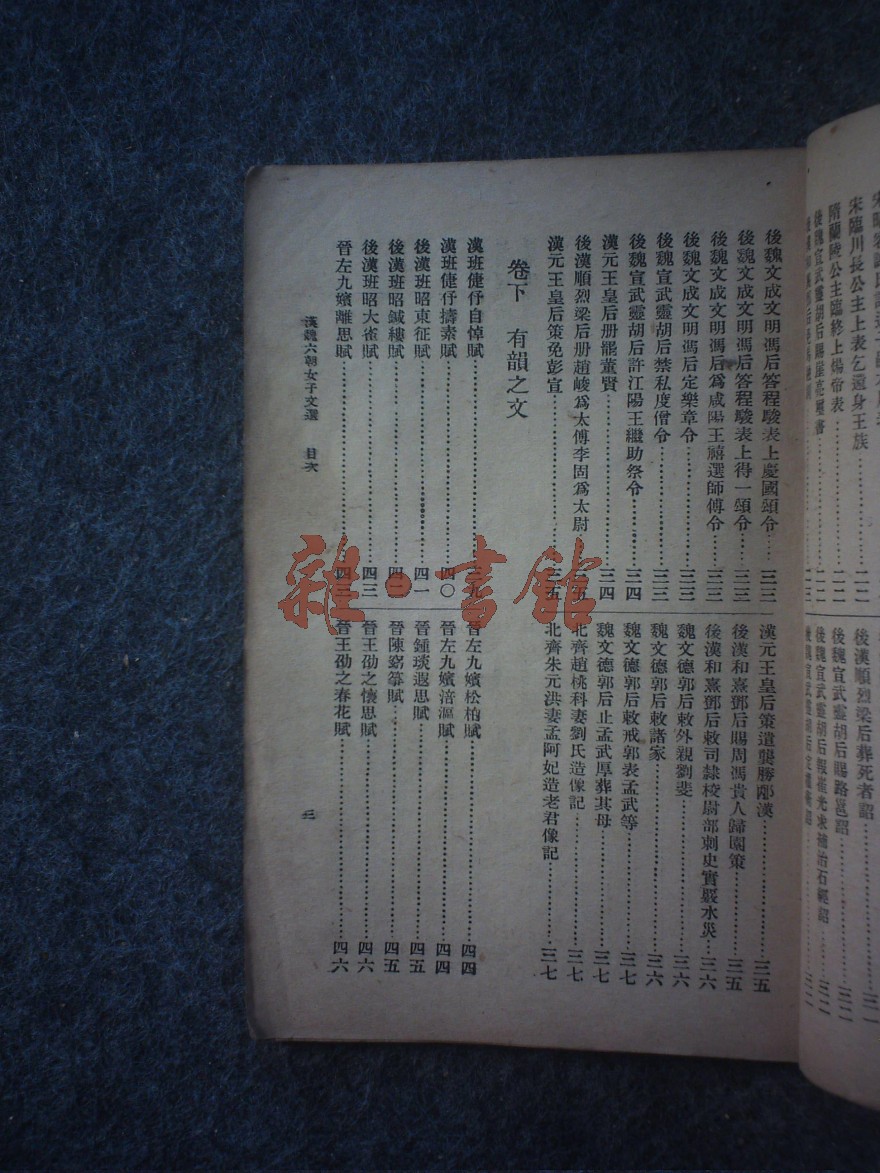 宋臨川長公主上表乞還身王族
隋蘭陵公主臨終上煬帝表……二二
後漢順烈梁后葬死者詔……三一
後魏宣武靈胡后賜路邕詔……三二
後魏宣武靈胡后報崔光求補治石經詔……三二
後魏文成文明馮后答程駿表上慶國頌令……三三
後魏文成文明馮后答程駿表上得一頌令……三三
後魏文成文明馮后爲咸陽王禧選師傅令……三三
後魏文成文明馮后定樂章令……三三
後魏宣武靈胡后禁私度僧令……三三
後魏宣武靈胡后許江陽王繼助祭令……三四
漢元王皇后册罷董賢……三四
後漢順烈梁后册趙峻爲太傅李固爲太尉……三五
漢元王皇后策免彭宣……三五
漢元王皇后策遣龔勝邴漢……三五
後漢和熹鄧后賜周馮貴人歸園策……三五
後漢和熹鄧后敕司隸校尉部刺史實覈水災……三六
魏文德郭后敕外親劉斐……三六
魏文德郭后敕諸家……三六
魏文德郭后敕戒郭表孟武等……三七
魏文德郭后止孟武厚葬其母……三七
北齊趙桃科妻劉氏造像記……三七
北齊朱元洪妻孟阿妃造老君像記……三七
卷下　有韻之文
漢班倢伃自悼賦……三九
漢班倢伃擣素賦……四〇
後漢班昭東征賦……四一
後漢班昭鍼縷賦……四二
後漢班昭大雀賦……四三
晉左九嬪離思賦……四三
晉左九嬪松柏賦……四四
晉左九嬪涪漚賦……四四
晉鍾琰遐思賦……四五
晉陳窈箏賦……四五
晉王劭之懷思賦……四六
晉王劭之春花賦……四六
漢魏六朝女子文選　目次
三
雜·書館